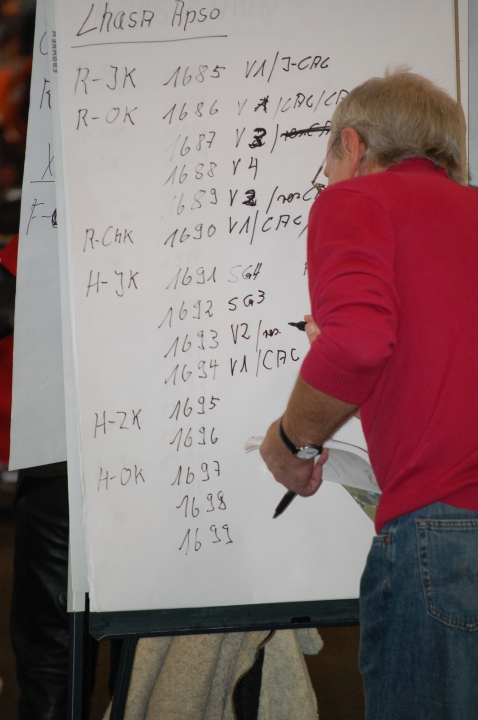 Lhasa Apso
R-JK 1685 V1/J-CAC
R-OK 1686 V /CAC/CA
1687 V3/
1688 V4
1689 V2/
R-ChK 1690 V1/CAC/
H-JK 1691 SG4
1692 SG3
1693 V2/
1694 V1/CAC
H-ZK 1695
1696
H-OK 1697
1698
1699